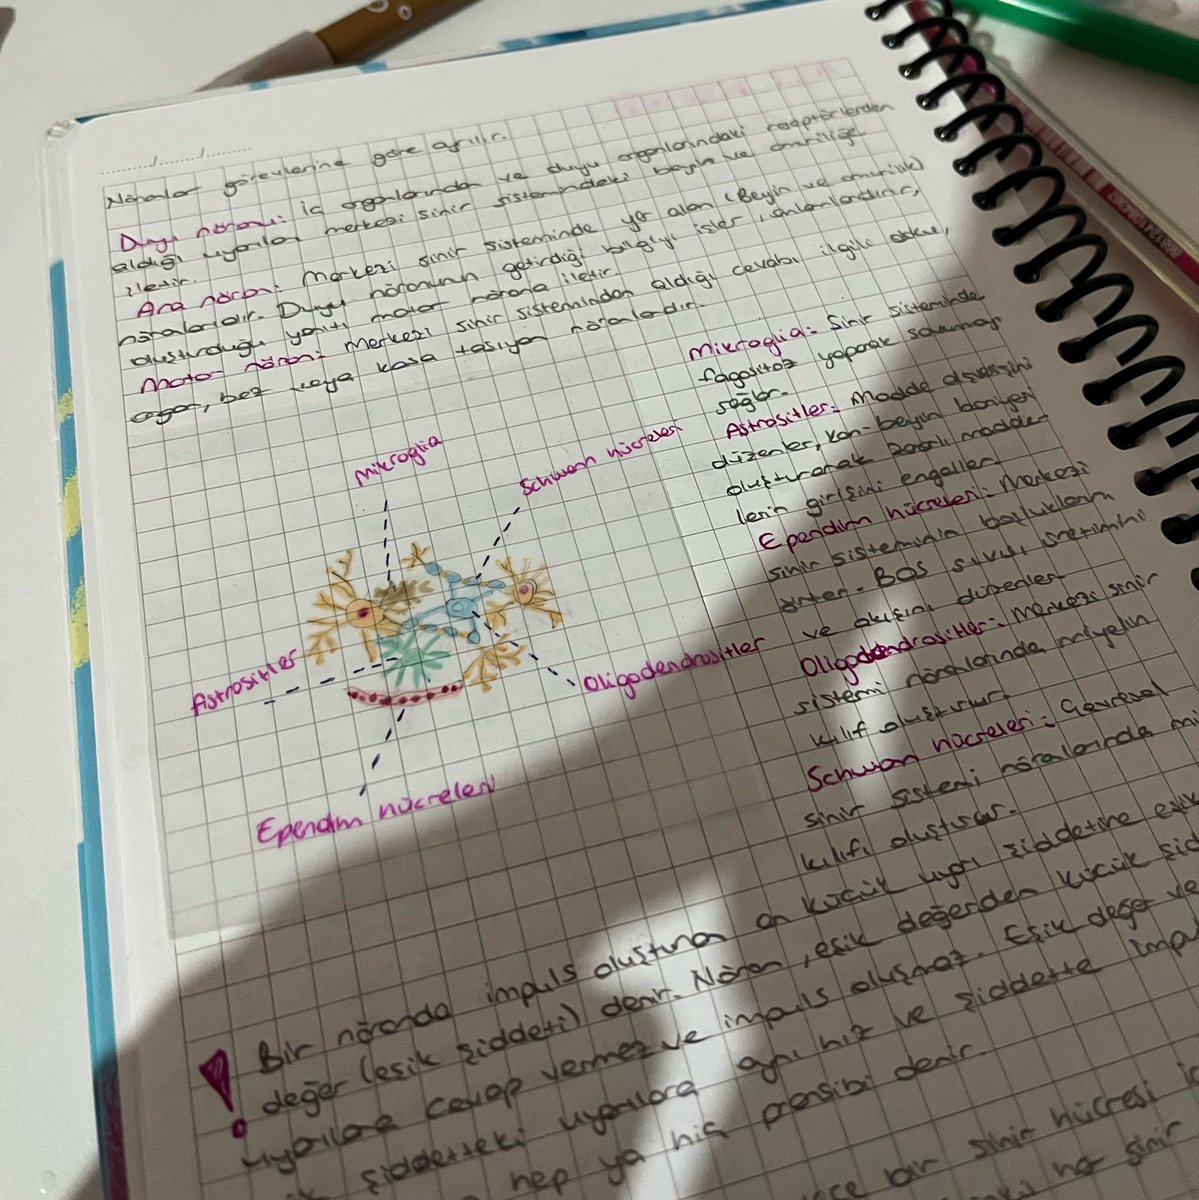 Nöronlar görevlerine göre ayrılır.
Duyu nöronu: iç organlarında ve duyu organlarındaki reseptörlerden
aldığı uyarıları merkezi sinir sistemindeki beyin ve omuriliğe
iletir.
Ara nöron: Merkezi sinir sisteminde yer alan (Beyin ve omurilik)
nöronlardır. Duyu nöronunun getirdiği bilgiyi işler, anlamlandırır,
oluşturduğu yanıtı motor nörona iletir.
Motor nöron: Merkezi sinir sisteminden aldığı cevabı ilgili
organ, bez veya kasa taşıyan nöronlardır.
Mikroglia
Schwann hücreleri
Astrositler
Oligodendrositler
Ependim hücreleri
Mikroglia: Sinir sisteminde
fagositoz yaparak savunmayı
sağlar.
Astrositler: Madde
düzenler, kan-beyin bariyeri
oluşturarak zararlı madde
lerin girişini engeller.
Ependim hücreleri: Merkezi
sinir sisteminin boşluklarını
BOS sıvısı üretimini
ve akışını düzenler
Oligodendrositler: Merkezi sinir
sistemi nöronlarında miyelin
kılıf oluşturur
Schwann hücreleri: Çevresel
sinir sistemi nöronlarında
kılıfı oluşturur.
! Bir nöronda impuls oluşturan en küçük uyarı şiddetine eşik
değer (eşik şiddeti) denir. Nöron, eşik değerden küçük
uyarılara cevap vermez ve impuls oluşmaz. Eşik değer ve
şiddetteki uyarılara aynı hız ve şiddette
hep ya hiç prensibi denir.
bir sinir hücresi
her sinir